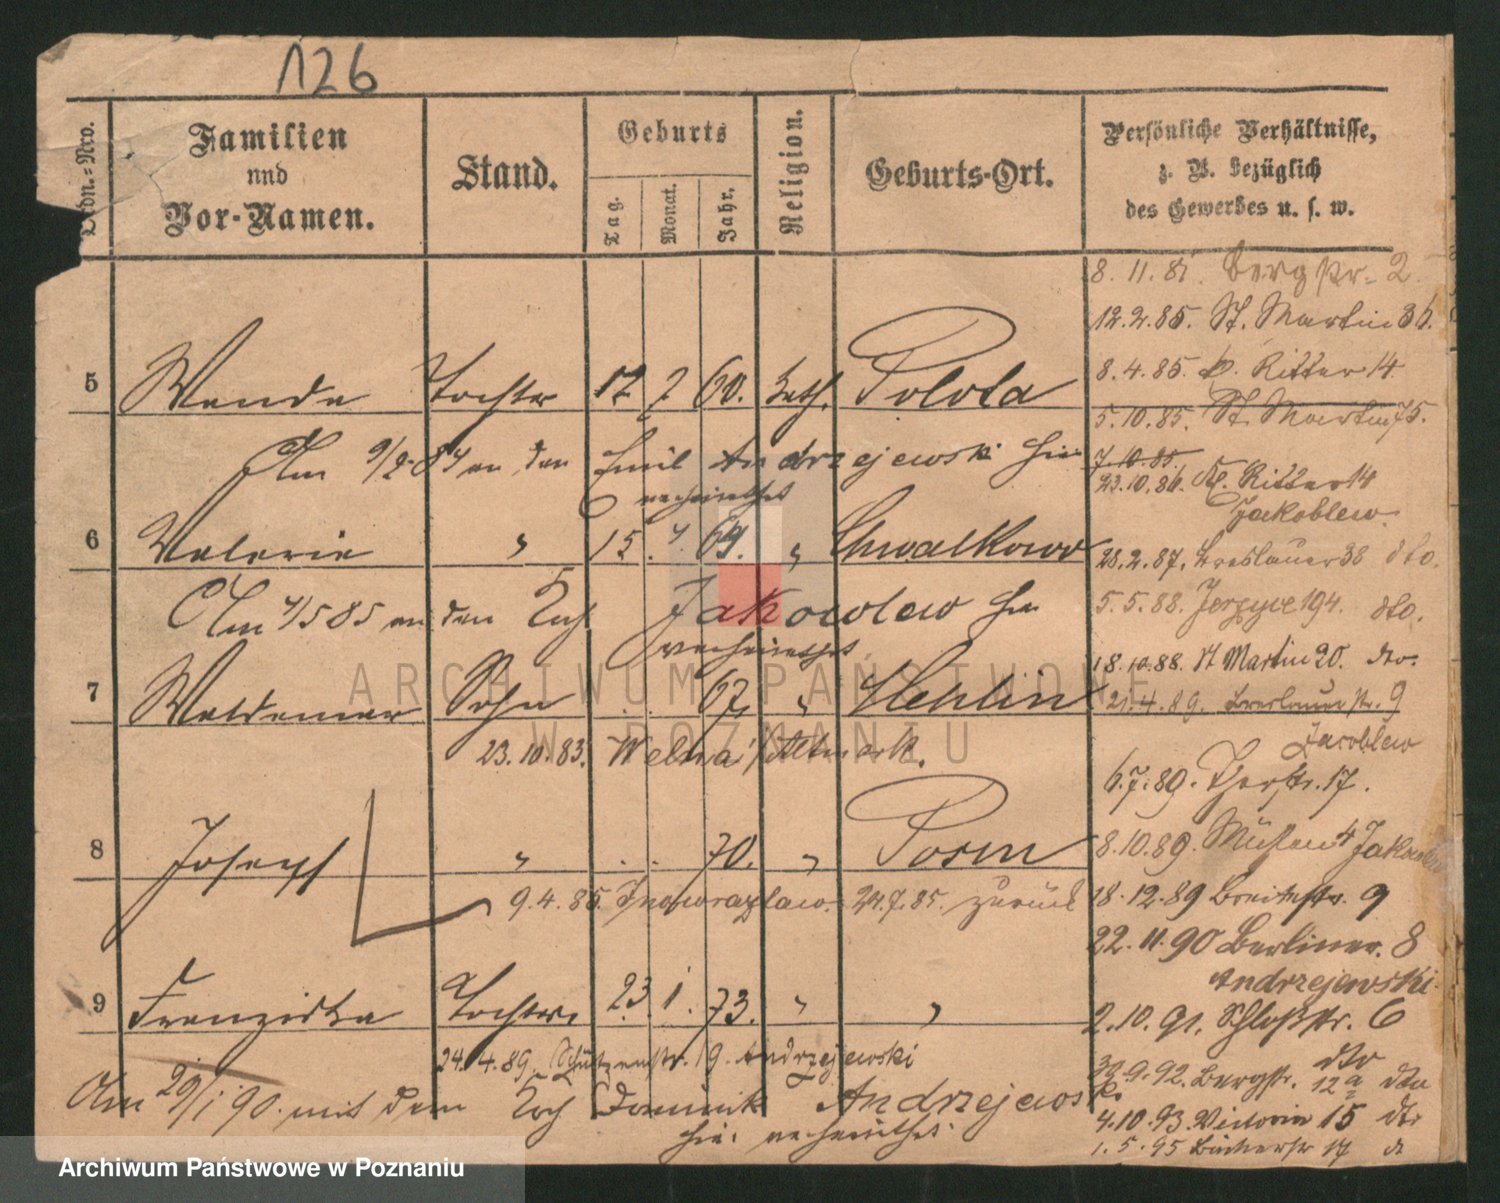 126
Ordn.-Nro.
Familien
und
Vor-Namen.
Stand.
Geburts
Tag.
Monat.
Jahr.
Religion.
Geburts-Ort.
Persönliche Verhältnisse,
z. B. bezüglich
des Gewerbes u. s. w.
8. 11. 81. Bergstr. 2
12.2.85. St. Martin 36.
8.4.85. Ritter 14
5 Wanda Tochter 12 7 60. kath.
5.10.85. St. Martin 75.
Am 9/2. 84 an den Emil Andrzejewski hier
verheirathet
7.10.85.
23.10.86. Kl. Ritter 14
Jakoblew.
6 Valerie " 15. 4. 69. " Chwalkowo
28.2.87. Breslauer 38 dto.
Am 4/5 85 an den Koch Jakowlew hier
verheirathet
5.5.88. 194. dto.
18.10.88. St Martin 20. dto.
7 Waldemar Sohn . . 67, "
21.4.89. Breslauerstr. 9
Jacoblew
23.10.83.
6.7.89. 17.
8 Joseph " . . 70. " Posen
8.10.89. Mühlen 4
9.4.85. Inowrazlaw. 24.7.85. zurück
18.12.89 Breitestr. 9
22.11.90 Berliner. 8
Andrzejewski
9 Franziska Tochter 23. 1. 73. " "
2.10.91. Schloßstr. 6
24.4.89. Schützenstr. 19. Andrzejewski
dto
30.9.92. Bergstr. 12a dto
Am 29/1 90. mit dem Koch Dominik Andrzejewski
hier verheirathet.
4.10.93. Victoria 15 dto
1.5.95 17
ARCHIWUM PAŃSTWOWE
W POZNANIU
Archiwum Państwowe w Poznaniu